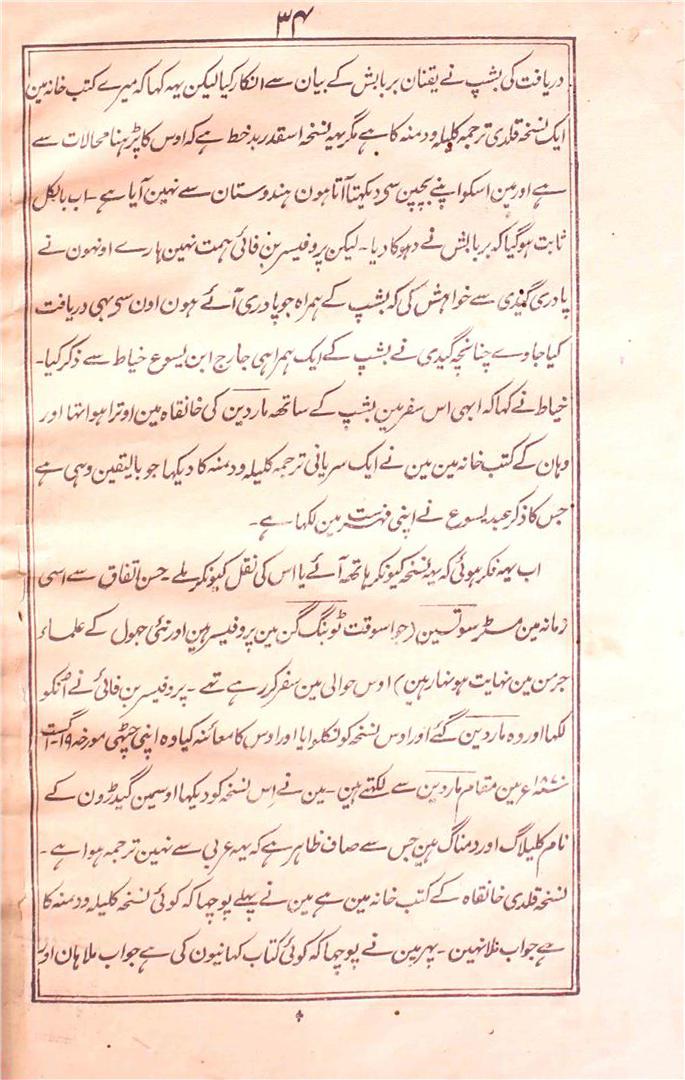 ۳۴
دریافت کی بشپ نے یقنان بربابش کے بیان سے انکار کیا لیکن یہہ کہا کہ میرے کتب خانہ مین
ایک نسخہ قلدی ترجمہ کلیلہ ودمنہ کا ہے مگر یہہ نسخہ اسقدر بدخط ہے کہ اوس کا پڑہنا محالات سے
ہے اور مین اسکو اپنے بچپن سی دیکہتا آتا ہون ہندوستان سے نہین آیا ہے - اب بالکل
ثابت ہوگیا کہ بربابش نے دہوکا دیا - لیکن پروفیسر بن فائی ہمت نہین ہارے اونہون نے
پادری گیندی سے خواہش کی کہ بشپ کے ہمراہ جو پادری آئے ہون اون سی بہی دریافت
کیا جاوے چنانچہ گیدی نے بشپ کے ایک ہمراہی جارج ابن یسوع خیاط سے ذکر کیا -
خیاط نے کہا کہ ابہی اس سفر مین بشپ کے ساتھہ ماردین کی خانقاہ مین اوترا ہوا تہا اور
وہان کے کتب خانہ مین مین نے ایک سریانی ترجمہ کلیلہ ودمنہ کا دیکہا جو بالیقین وہی ہے
جس کا ذکر عبد یسوع نے اپنی فہرست مین لکہا ہے -
اب یہہ فکر ہوئی کہ یہہ نسخہ کیونکر ہاتھہ آئے یا اس کی نقل کیونکر ملے - حسن اتفاق سے اسی
زمانہ مین مسٹر سوتسین (جو اسوقت ٹوبنگ گن مین پروفیسر ہین اور نئی جہول کے علماء
جرمن مین نہایت ہونہار ہین) اوس حوالی مین سفر کر رہے تھے - پروفیسر بن فائی نے انکو
لکہا اور وہ ماردین گئے اور اوس نسخہ کو نکلوایا اور اوس کا معائنہ کیا وہ اپنی چٹہی مورخہ ۱۹ اگست
۱۸۷۰ء مین مقام ماردین سے لکہتے ہین - مین نے اس نسخہ کو دیکہا اوسمین گیدڑون کے
نام کلیلاگ اور دمناگ ہین جس سے صاف ظاہر ہے کہ یہہ عربی سے نہین ترجمہ ہوا ہے -
نسخہ قلدی خانقاہ کے کتب خانہ مین ہے مین نے پہلے پوچہا کہ کوئی نسخہ کلیلہ ودمنہ کا
ہے جواب ملا نہین - پہر مین نے پوچہا کہ کوئی کتاب کہانیون کی ہے جواب ملا ہان اور